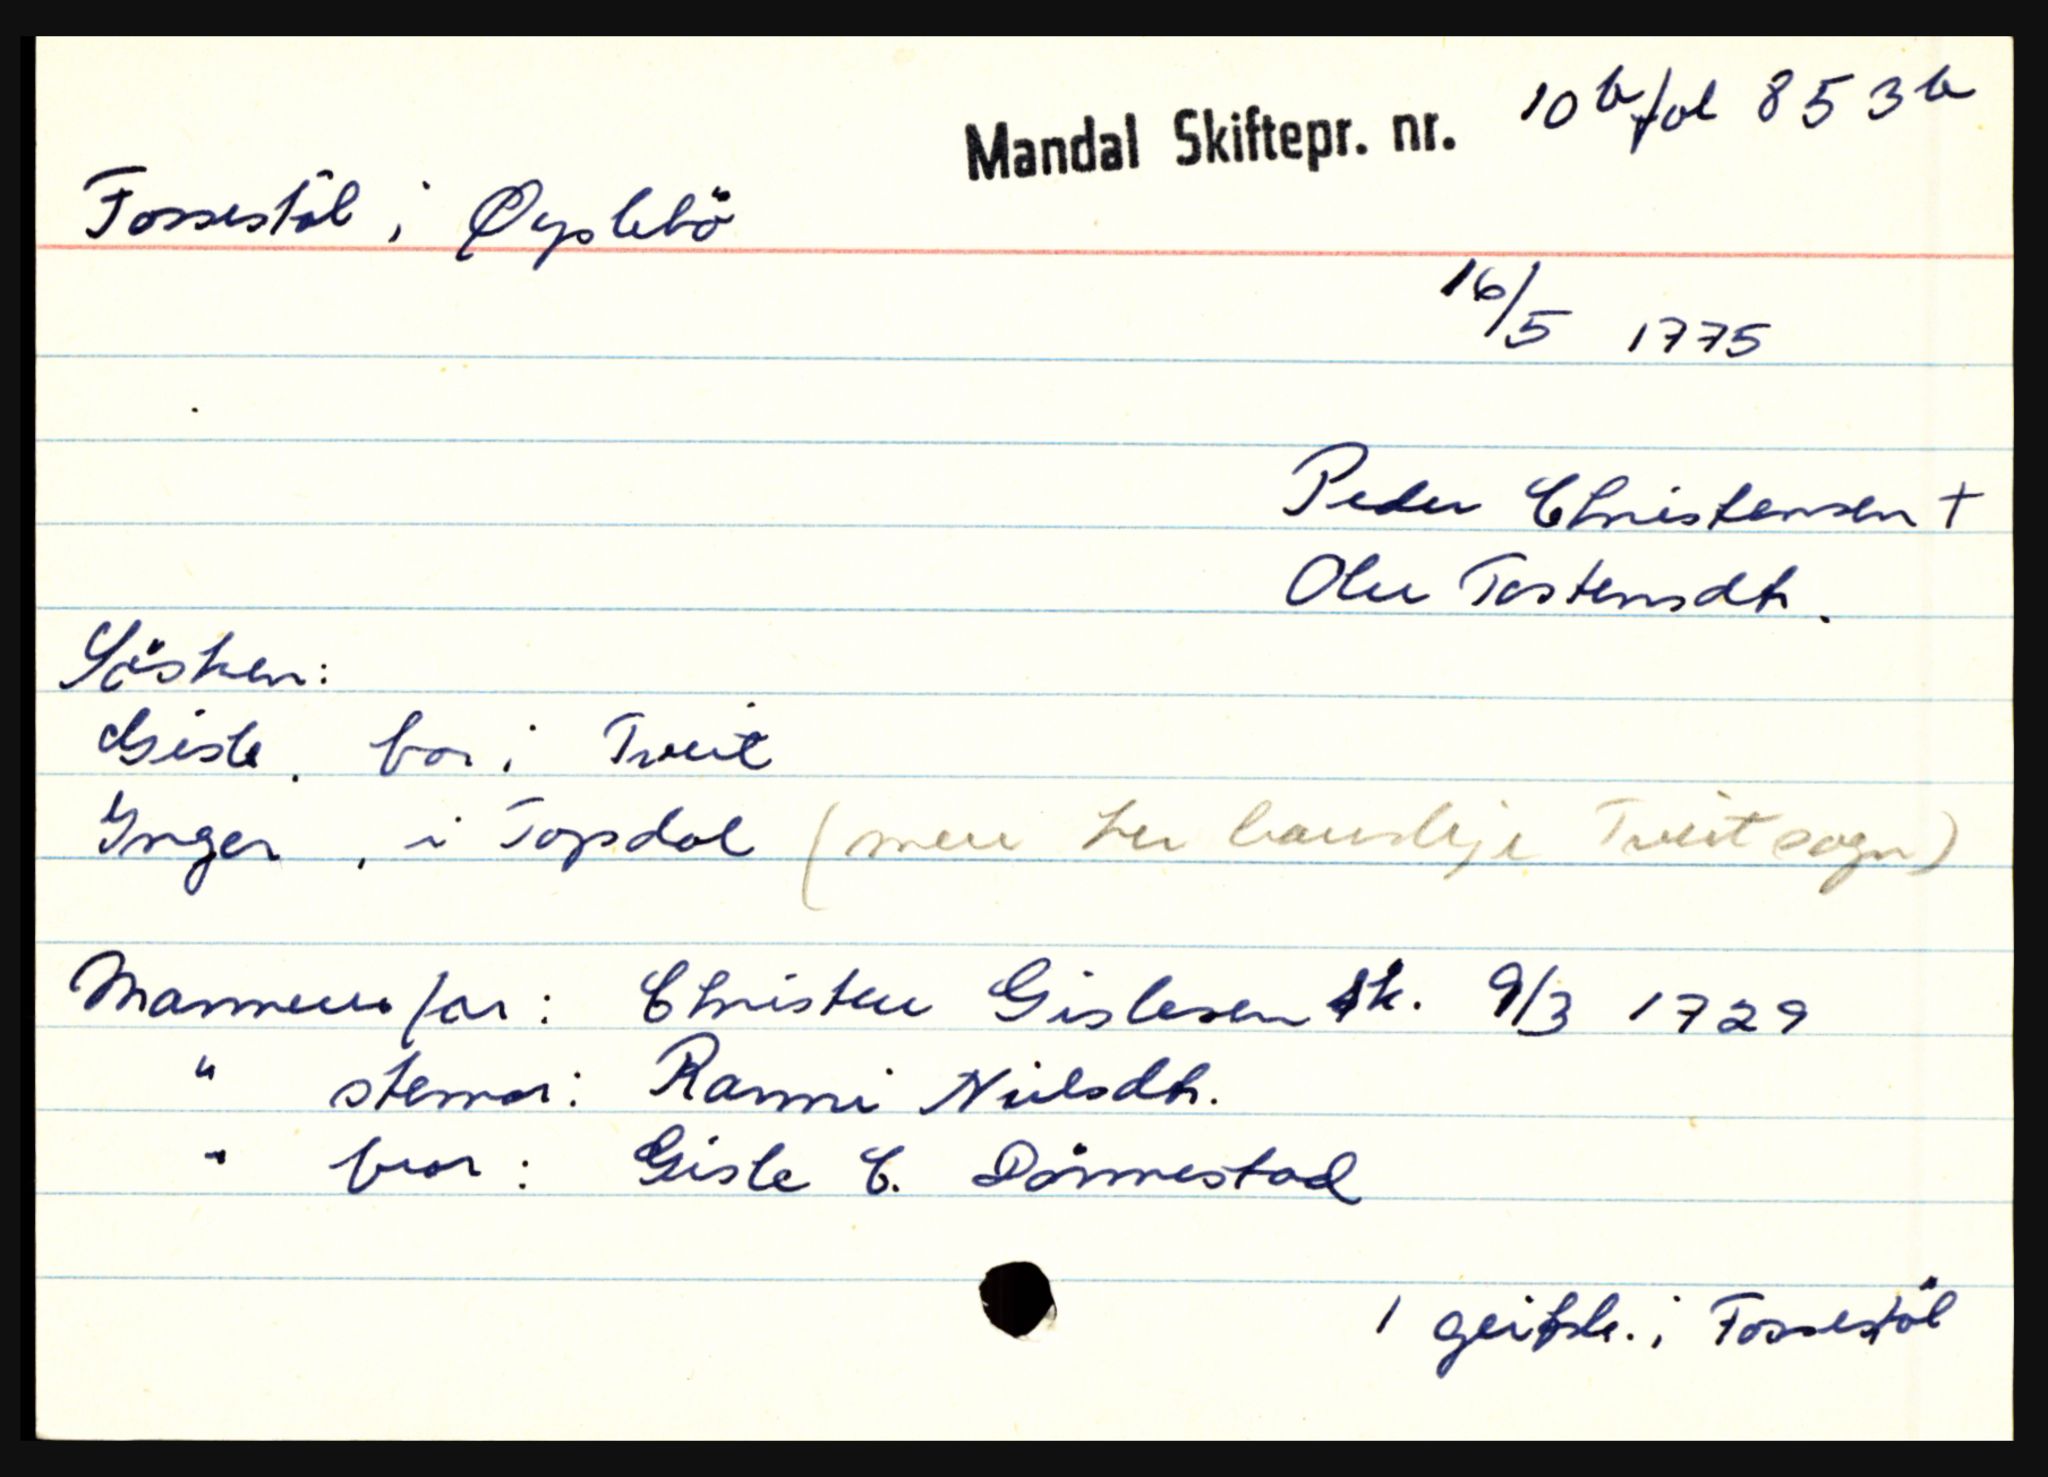 Mandal Skiftepr. nr. 10b fol 853b
Fossestöl i Øyslebö
16/5 1775
Peder Christensen +
Olu Tostensdtr.
Sösken:
Gisle, bor i Tveit
Inger, i Topdal ( Tveit sogn)
Mannens far: Christen Gislesen sk. 9/3 1729
" stemor: Ranni Nielsdtr.
" bror: Gisle C. Dönnestad
1 geitsk. i Fossestöl